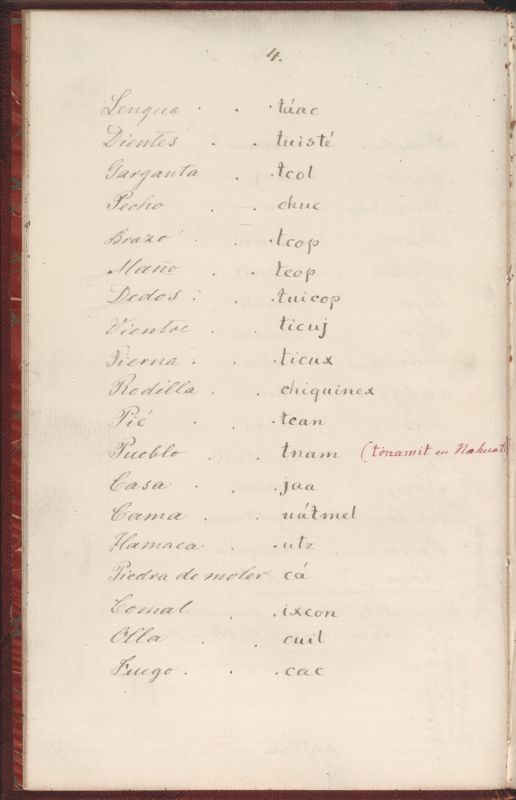 4.
Lengua . . . táac
Dientes . . tuisté
Garganta . . tcol
Pecho . . chuc
Brazo . . . tcop
Maño . . . tcop
Dedos . . . tuicop
Vientre . . ticuj
Pierna . . . ticux
Rodilla . . chiquinex
Pié . . . tcan
Pueblo . . . tnam (tenamit en Nahuatl)
Casa . . . jaa
Cama . . . uátmel
Hamaca . . . utz
Piedra de moler cá
Comal . . . ixcon
Olla . . cuil
Fuego . . . cac